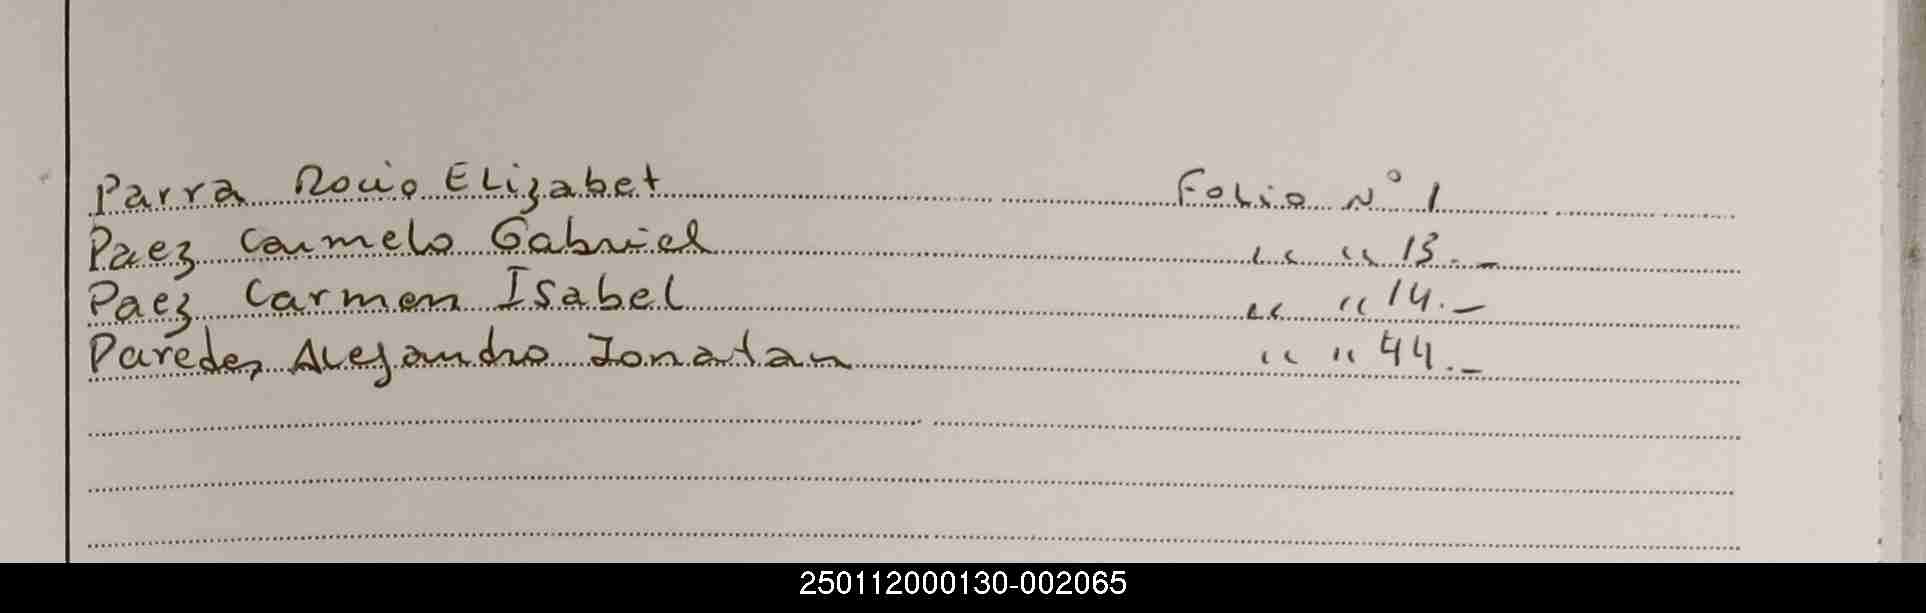 Parra Rocio Elizabet Folio Nº 1
Paez Carmelo Gabriel " " 13.-
Paez Carmen Isabel " " 14.-
Paredes Alejandro Jonatan " " 44.-
250112000130-002065